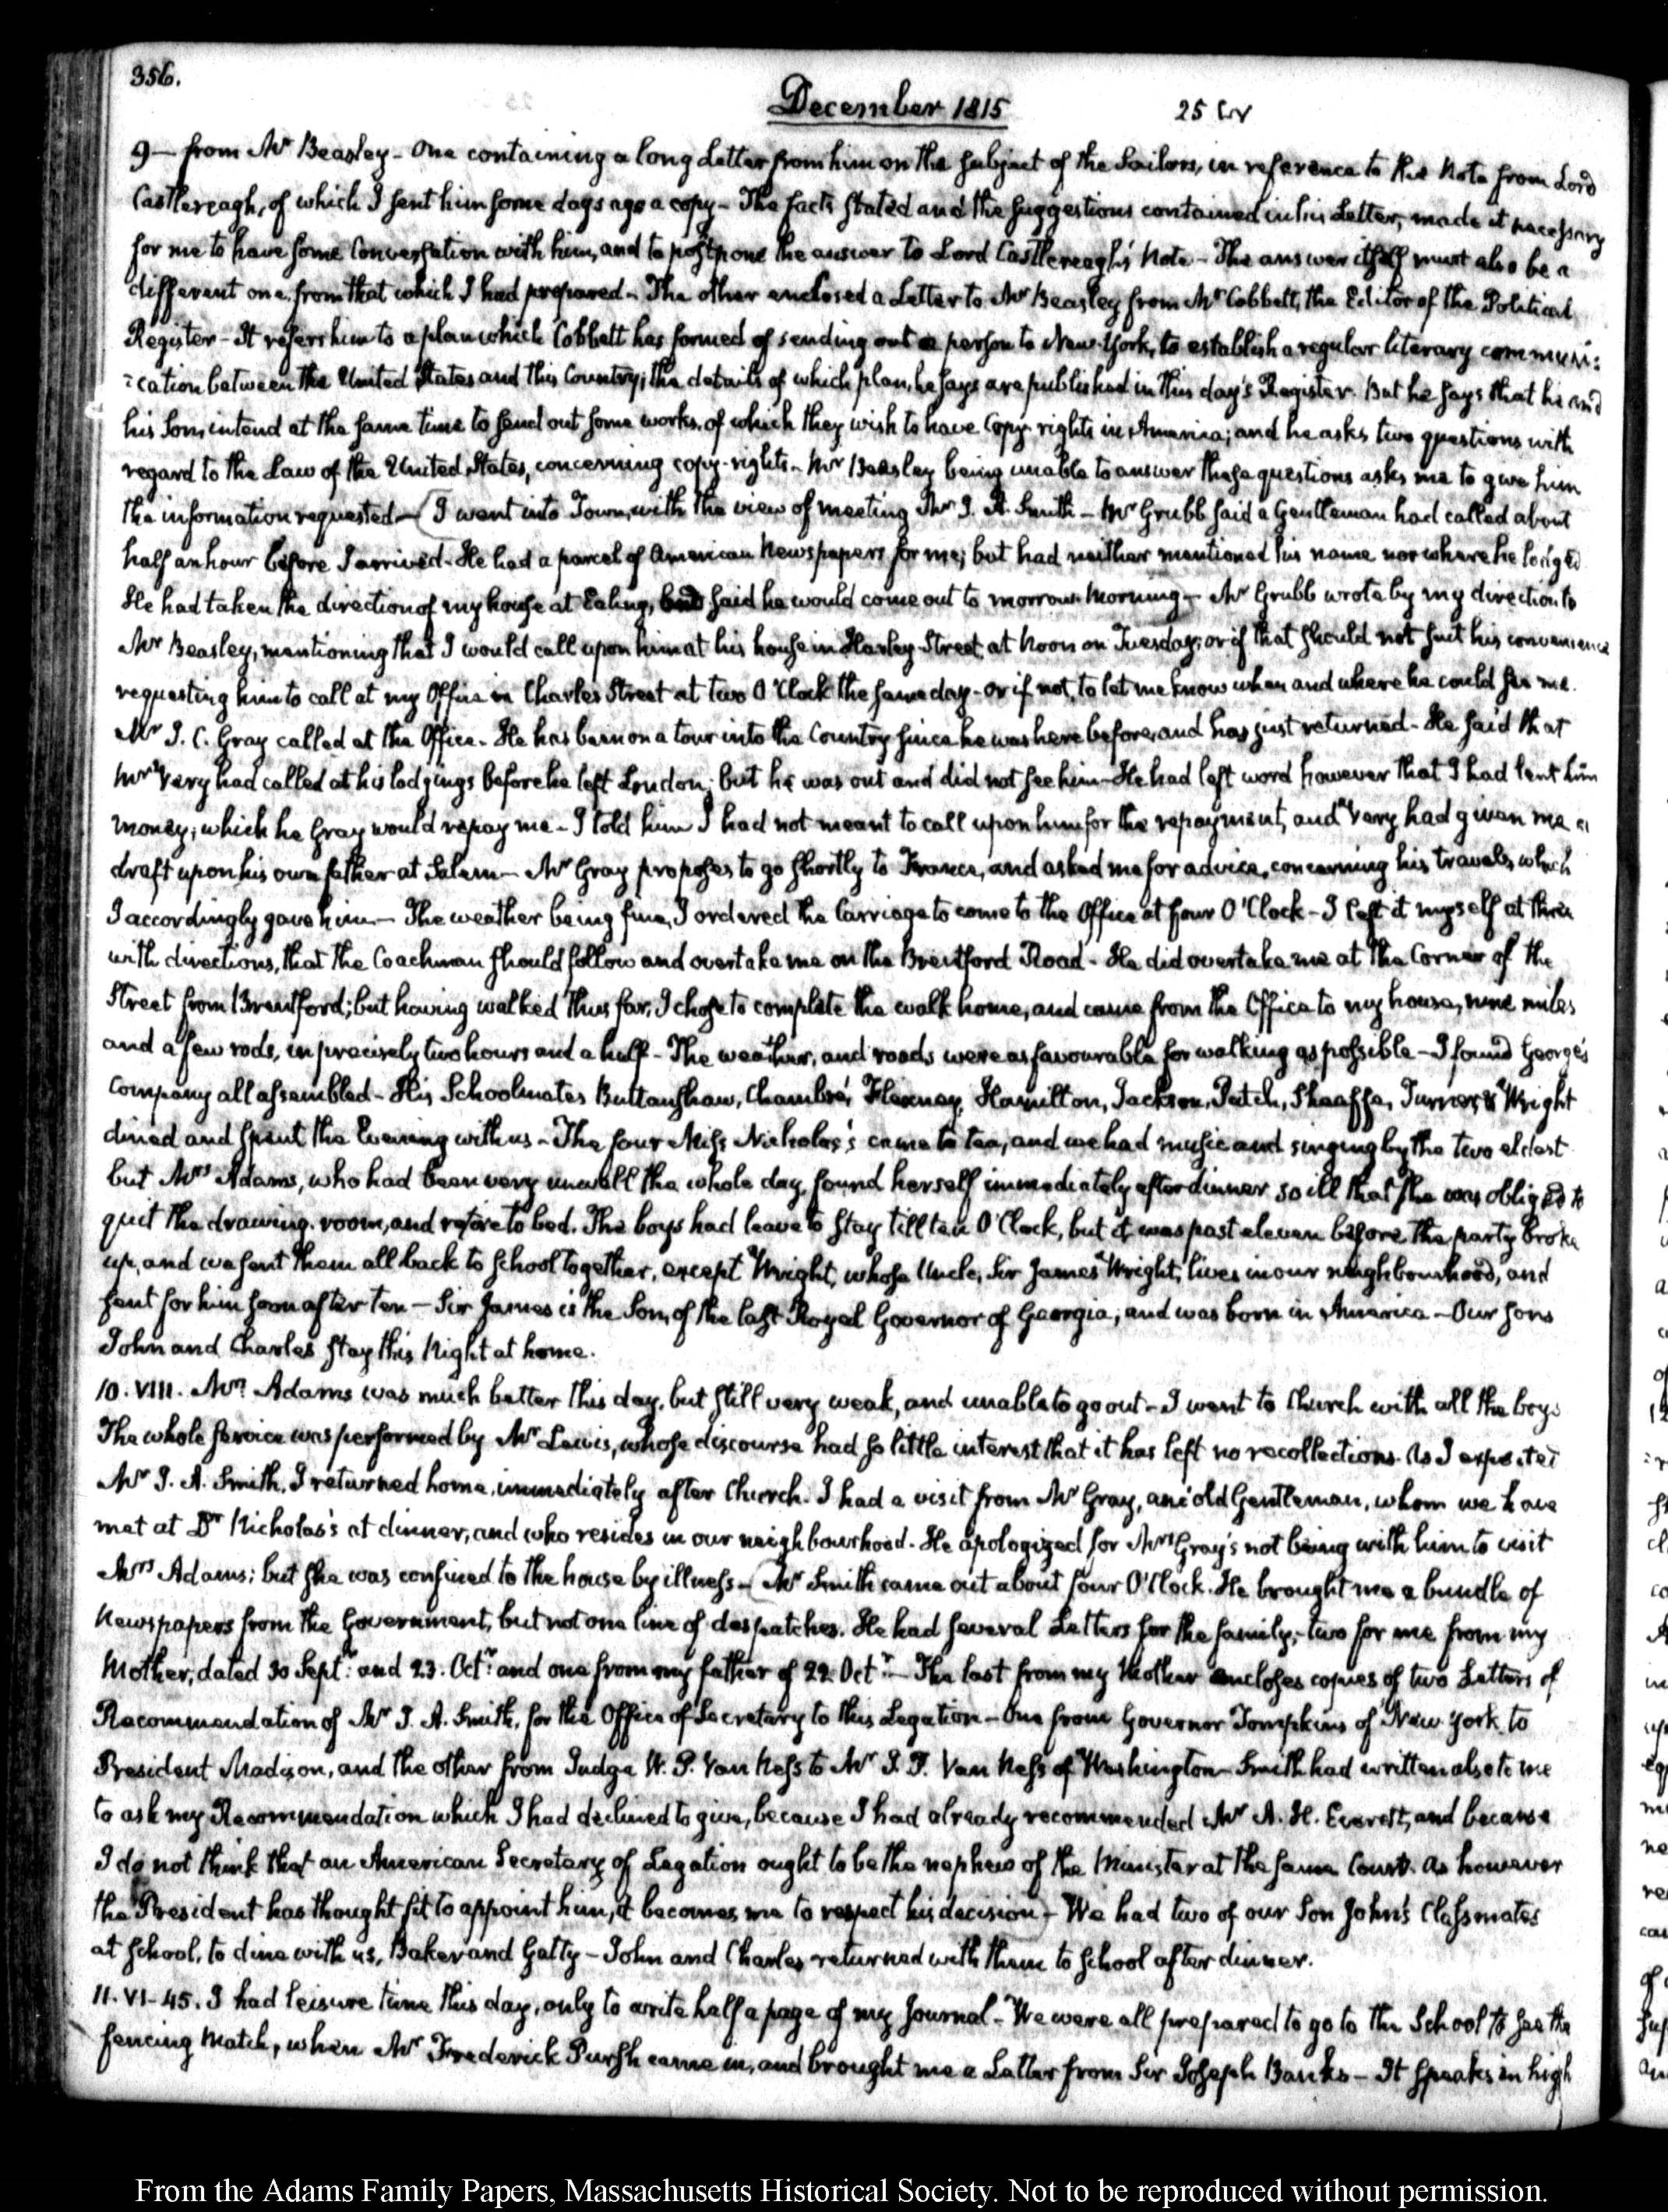 356.
December 1815
25
9— from Mr Beasley — One containing a long Letter from him on the subject of the Sailors, in reference to the Note from Lord
Castlereagh, of which I sent him some days ago a copy — The facts stated and the suggestions contained in his Letter, made it necessary
for me to have some Conversation with him, and to postpone the answer to Lord Castlereagh's Note — The answer itself must also be a
different one from that which I had prepared — The other enclosed a Letter to Mr Beasley from Mr Cobbett, the Editor of the Political
Register — It refers him to a plan which Cobbett has formed of sending out a person to New-York, to establish a regular literary communi:
:cation between the United States and this Country; the details of which plan, he says are published in this day's Register. But he says that he and
his Son, intend at the same time to send out some works, of which they wish to have Copy-rights in America; and he asks two questions with
regard to the Law of the United States, concerning copy-rights — Mr Beasley being unable to answer these questions asks me to give him
the information requested — I went into Town, with the view of meeting Mr J. A. Smith — Mr Grubb said a Gentleman had called about
half an hour before I arrived — He had a parcel of American Newspapers for me; but had neither mentioned his name nor where he lodged
He had taken the direction of my house at Ealing, and said he would come out to morrow Morning — Mr Grubb wrote by my direction to
Mr Beasley, mentioning that I would call upon him at his house in Harley Street at Noon on Tuesday; or if that should not suit his convenience
requesting him to call at my Office in Charles Street at two O'Clock the same day — or if not, to let me know when and where he could see me.
Mr J. C. Gray called at the Office — He has been on a tour into the Country since he was here before, and has just returned — He said that
Mr Very had called at his lodgings before he left London; but he was out and did not see him — He had left word however that I had lent him
money; which he Gray would repay me — I told him I had not meant to call upon him for the repayment, and Very had given me a
draft upon his own father at Salem — Mr Gray proposes to go shortly to France, and asked me for advice, concerning his travels which
I accordingly gave him — The weather being fine, I ordered the Carriage to come to the Office at four O'Clock — I left it myself at three
with directions, that the Coachman should follow and overtake me on the Brentford Road — He did overtake me at the Corner of the
Street from Brentford; but having walked thus far, I chose to complete the walk home, and came from the Office to my house, nine miles
and a few rods, in precisely two hours and a half — The weather, and roads were as favourable for walking as possible — I found George's
Company all assembled — His Schoolmates Buttanshaw, Chambré, Flexney, Hamilton, Jackson, Patch, Sheaffe, Turner, & Wright
dined and spent the Evening with us — The four Miss Nicholas's came to tea, and we had music and singing by the two eldest
but Mrs Adams, who had been very unwell the whole day, found herself immediately after dinner so ill that she was obliged to
quit the drawing-room, and retire to bed. The boys had leave to stay till ten O'Clock, but it was past eleven before the party broke
up, and we sent them all back to school together, except Wright, whose Uncle, Sir James Wright, lives in our neighbourhood, and
sent for him soon after ten — Sir James is the Son, of the last Royal Governor of Georgia, and was born in America — Our Sons
John and Charles stay this Night at home.
10. VIII. Mrs Adams was much better this day, but still very weak, and unable to go out — I went to Church with all the boys
The whole service was performed by Mr Lewis, whose discourse had so little interest that it has left no recollections. As I expected
Mr J. A. Smith, I returned home, immediately after Church. I had a visit from Mr Gray, an old Gentleman, whom we have
met at Dr Nicholas's at dinner, and who resides in our neighbourhood. He apologized for Mrs Gray's not being with him to visit
Mrs Adams; but she was confined to the house by illness — Mr Smith came out about four O'Clock. He brought me a bundle of
Newspapers from the Government, but not one line of despatches. He had several Letters for the family; two for me from my
Mother, dated 30 Septr and 23. Octr and one from my father of 22 Octr — The last from my Mother encloses copies of two Letters of
Recommendation of Mr J. A. Smith, for the Office of Secretary to this Legation — One from Governor Tompkins of New-York to
President Madison, and the other from Judge W. P. Van Ness to Mr J. P. Van Ness of Washington — Smith had written also to me
to ask my Recommendation which I had declined to give, because I had already recommended Mr A. H. Everett, and because
I do not think that an American Secretary of Legation ought to be the nephew of the Minister at the same Court. As however
the President has thought fit to appoint him, it becomes me to respect his decision — We had two of our Son John's Classmates
at School, to dine with us, Baker and Gatty — John and Charles returned with them to School after dinner.
11. VI-45. I had leisure time this day, only to write half a page of my Journal — We were all prepared to go to the School to see the
fencing Match, when Mr Frederick Pursh came in, and brought me a Letter from Sir Joseph Banks — It speaks in high
From the Adams Family Papers, Massachusetts Historical Society. Not to be reproduced without permission.